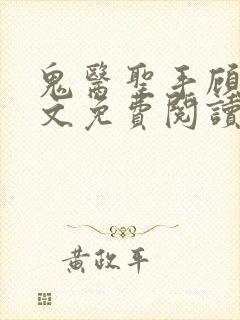 鬼醫聖手顾
文免費閱讀
黃政平